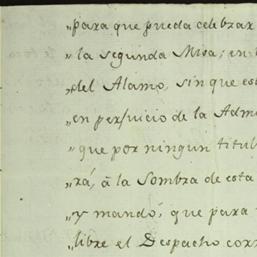 "para que pueda celebrar
"la segunda Misa, en
"del Alamo, sin que es
"en perjuicio de la Adm
"que por ningun titul
"rá, à la Sombra de esta
"y mandó, que para
"libre el Despacho corr